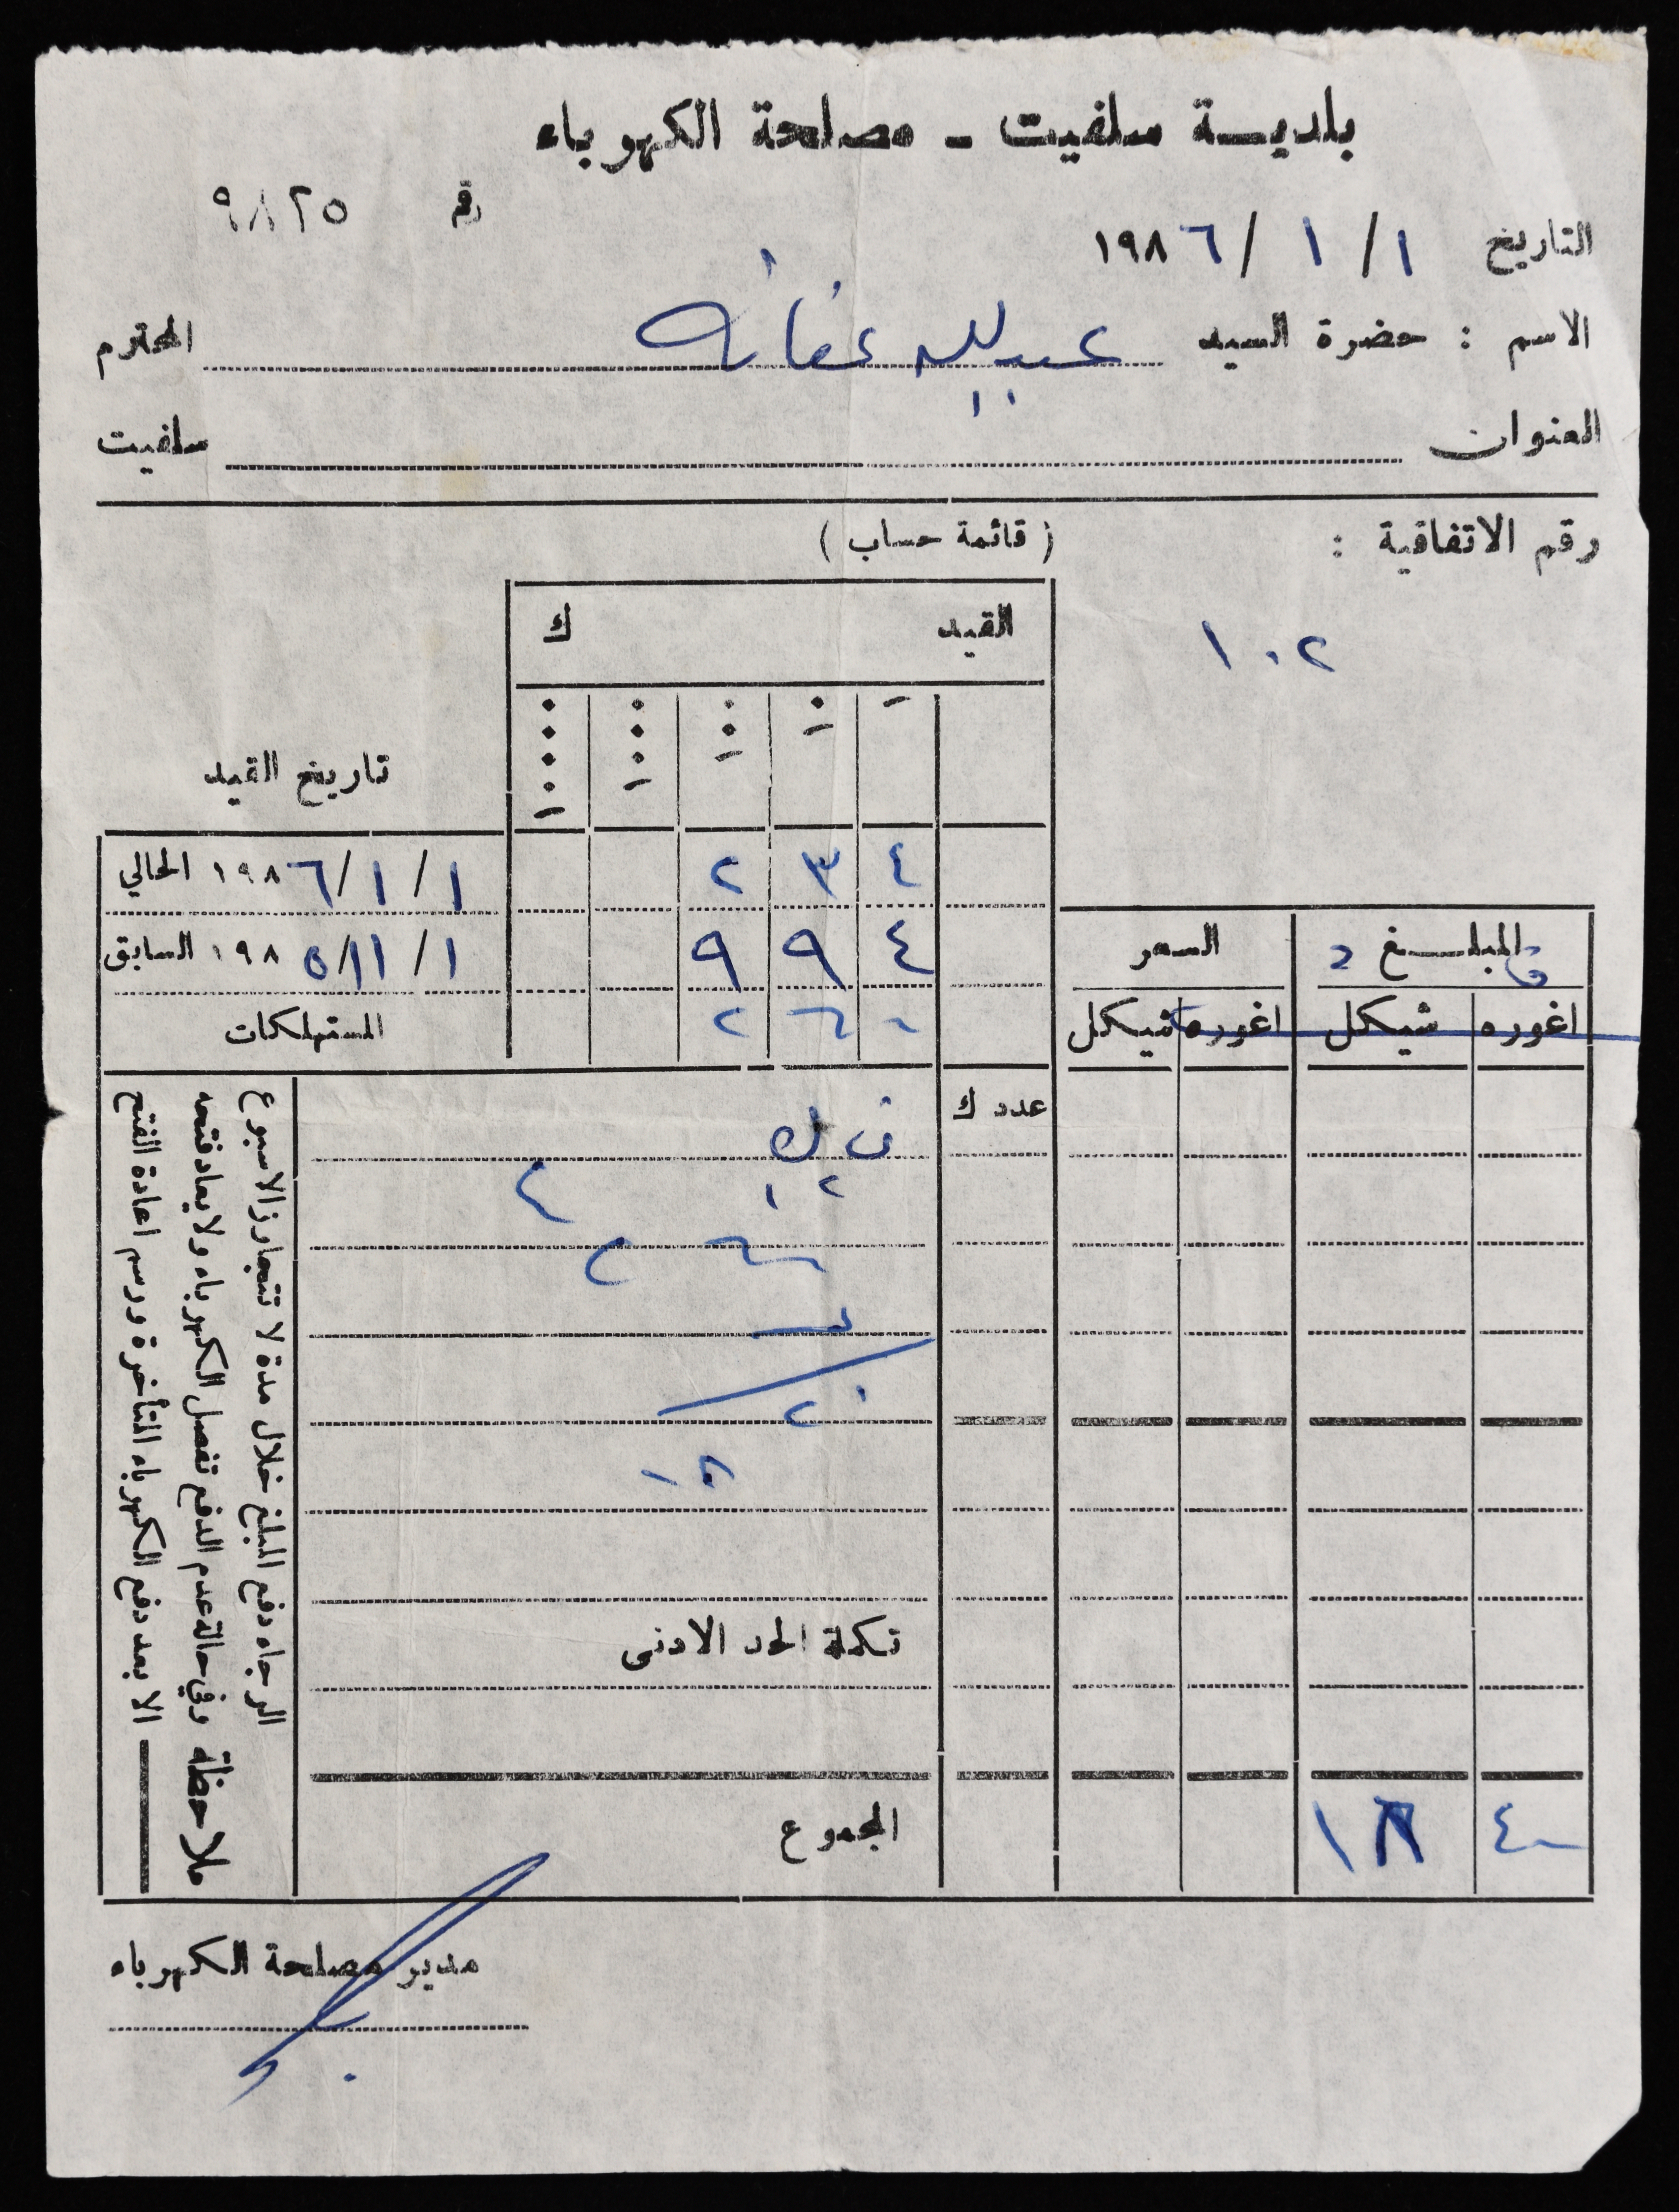 بلديـــة سلفيت - مصلحة الكهرباء
رقم ٩٨٢٥
التاريخ ١ / ١ / ١٩٨٦
الاسم : حضرة السيد عبدالله عفانه المحترم
العنوان سلفيت
رقم الاتفاقية : (قائمة حساب)
١٠٢
القيد ك
تاريخ القيد
٤ ٣ ٢ ١ / ١ / ١٩٨٦ الحالي
٤ ٩ ٩ ١ / ١١ / ١٩٨٥ السابق
المستهلكات
المبلــغ السعر
اغوره شيكل اغوره شيكل
عدد ك
تكملة الحد الادنى
المجموع
١٨ ٤٠
ملاحظة
الرجاء دفع المبلغ خلال مدة لا تتجاوز الاسبوع
وفي حالة عدم الدفع تفصل الكهرباء ولا يعاد فتحه
الا بعد دفع الكهرباء المتأخرة ورسم اعادة الفتح
مدير مصلحة الكهرباء